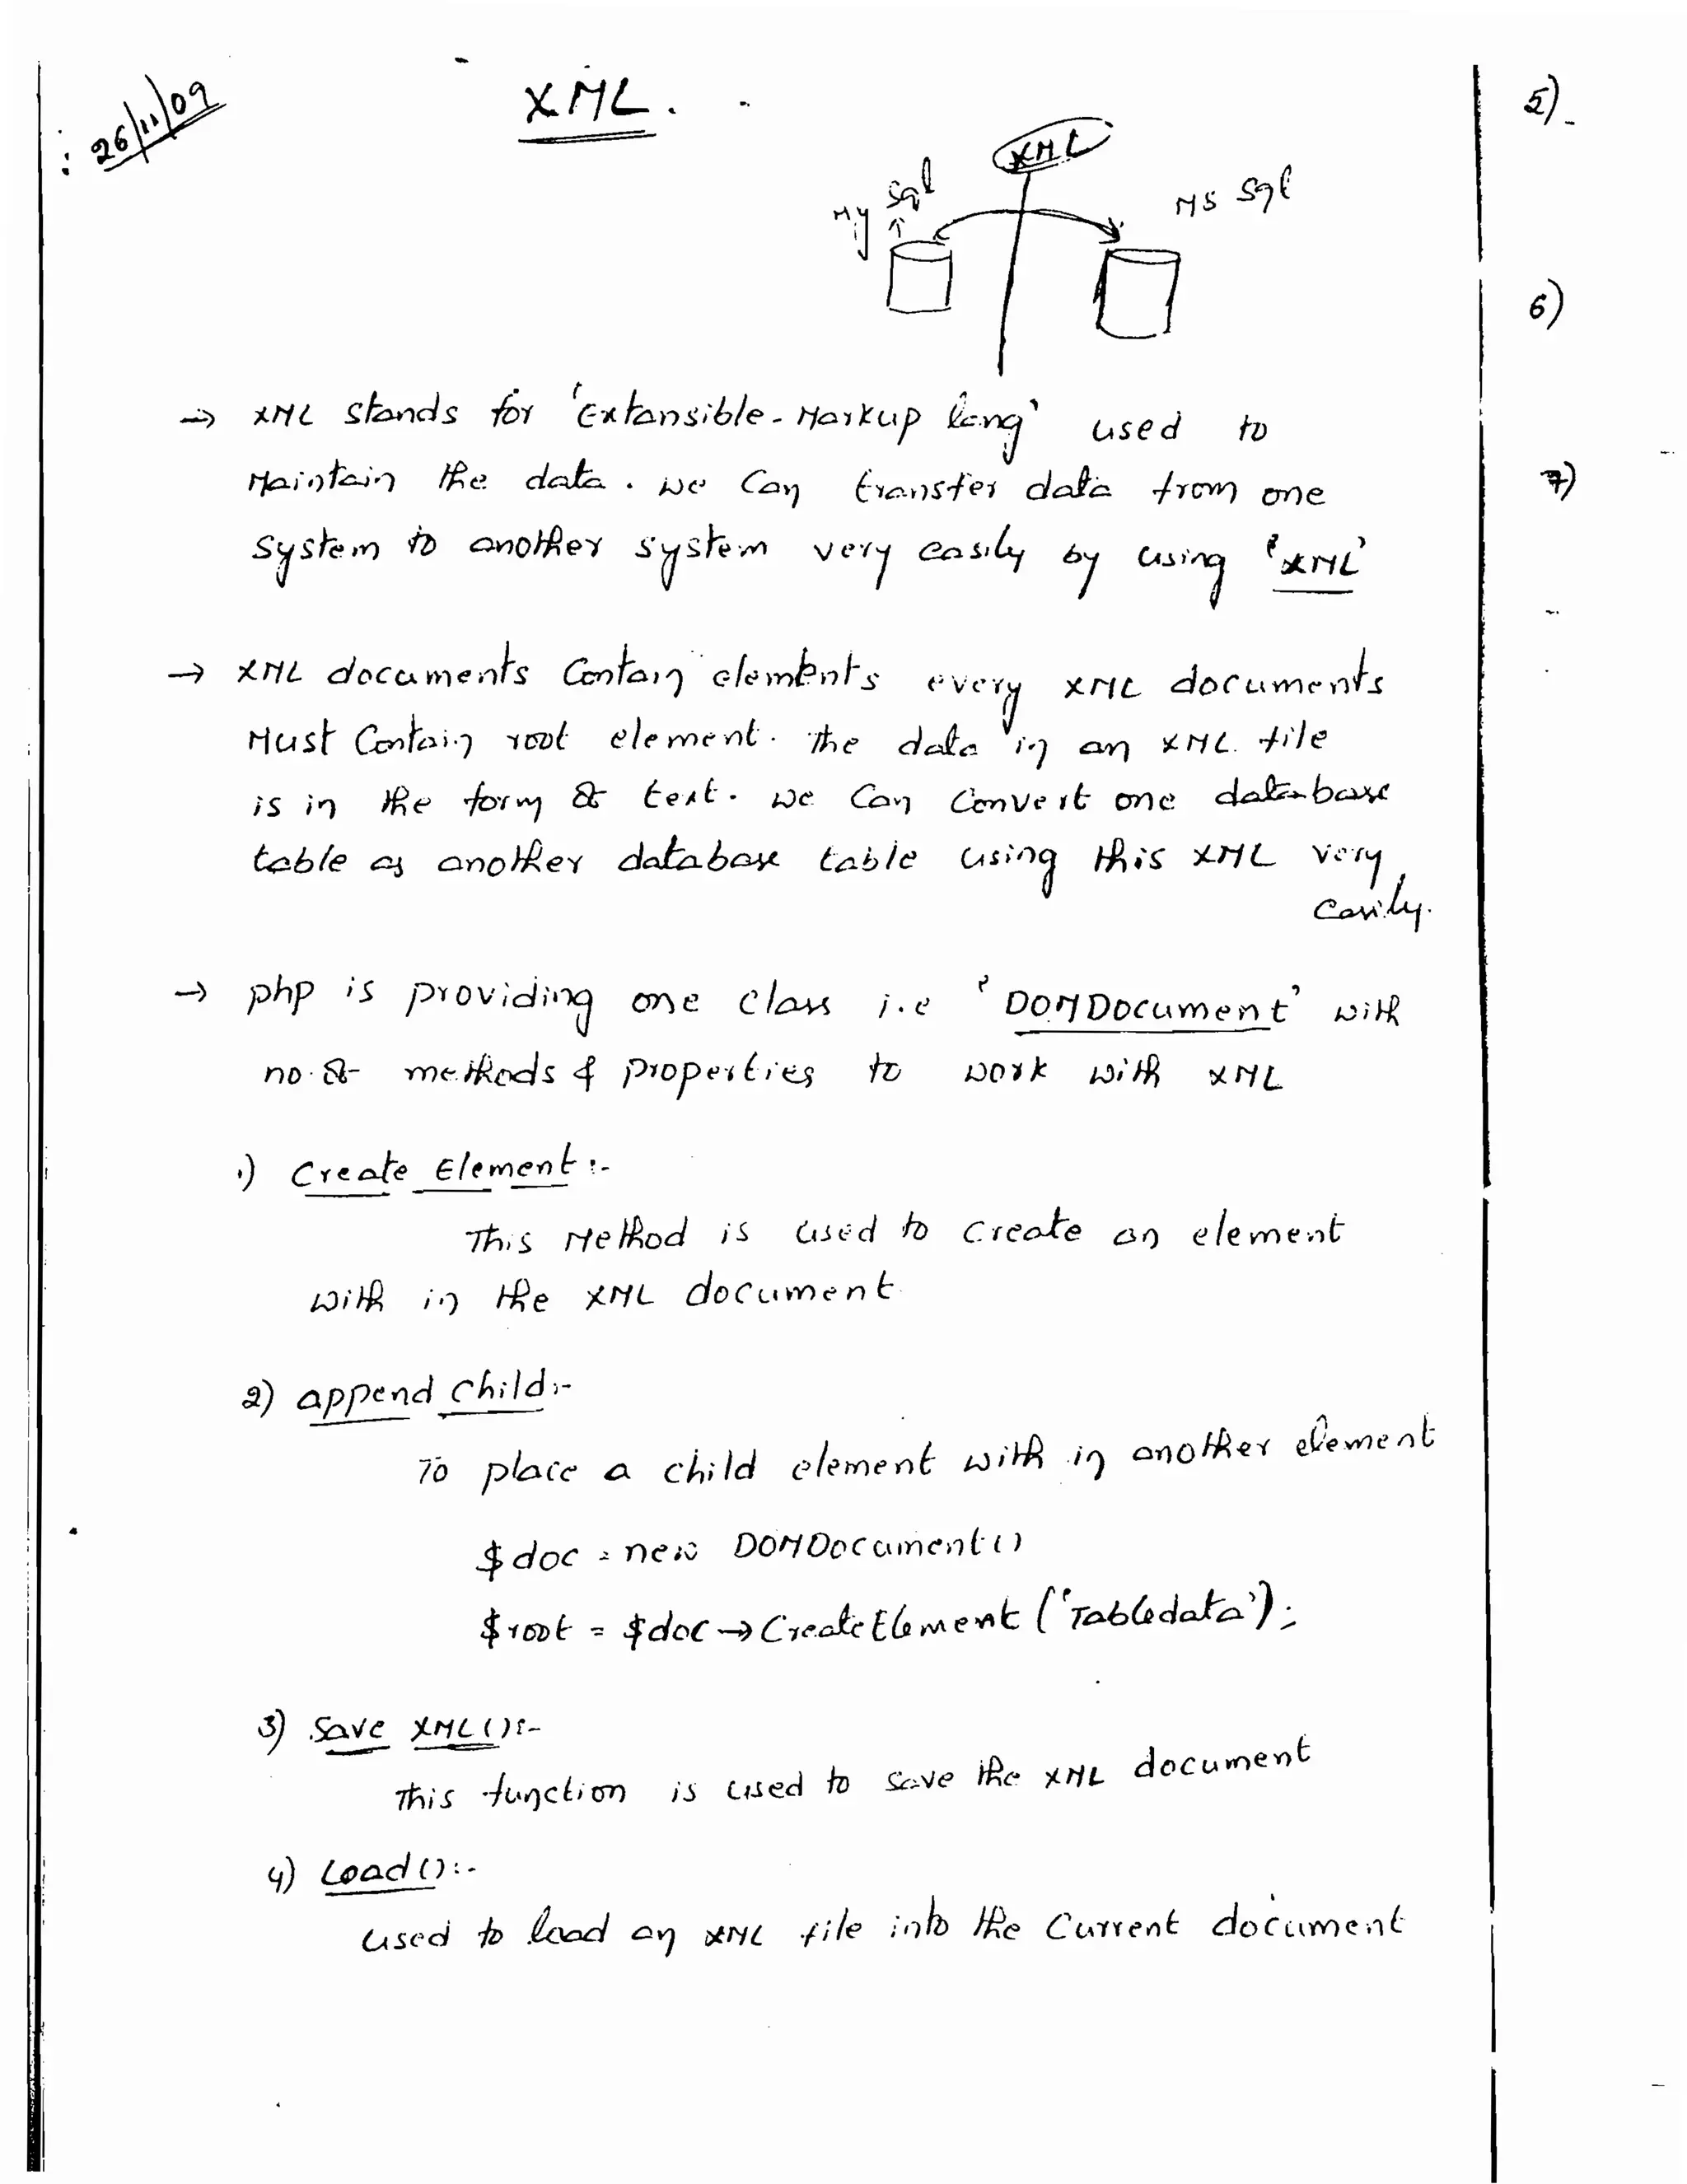 26/11/09
XML.
XML
My Sql
MS Sql
→ XML stands for 'Extansible-Markup lang' used to
Maintain the data. we Can transfer data from one
system to another system very easily by using 'XML'
→ XML documents Contain elements every XML documents
Must Contain root element. The data in an XML file
is in the form of text. we Can Convert one database
table as another database table using this XML very
easily.
→ php is providing one class i.e 'DOMDocument' with
no. of methods & properties to work with XML
1) Create Element :-
This Method is used to Create an element
with in the XML document
2) append child :-
To place a child element with in another element
$doc = new DOMDocument()
$root = $doc → CreateElement ('Tabledata');
3) Save XML() :-
This function is used to save the XML document
4) Load() :-
used to load an XML file into the Current document
5)
6)
7)